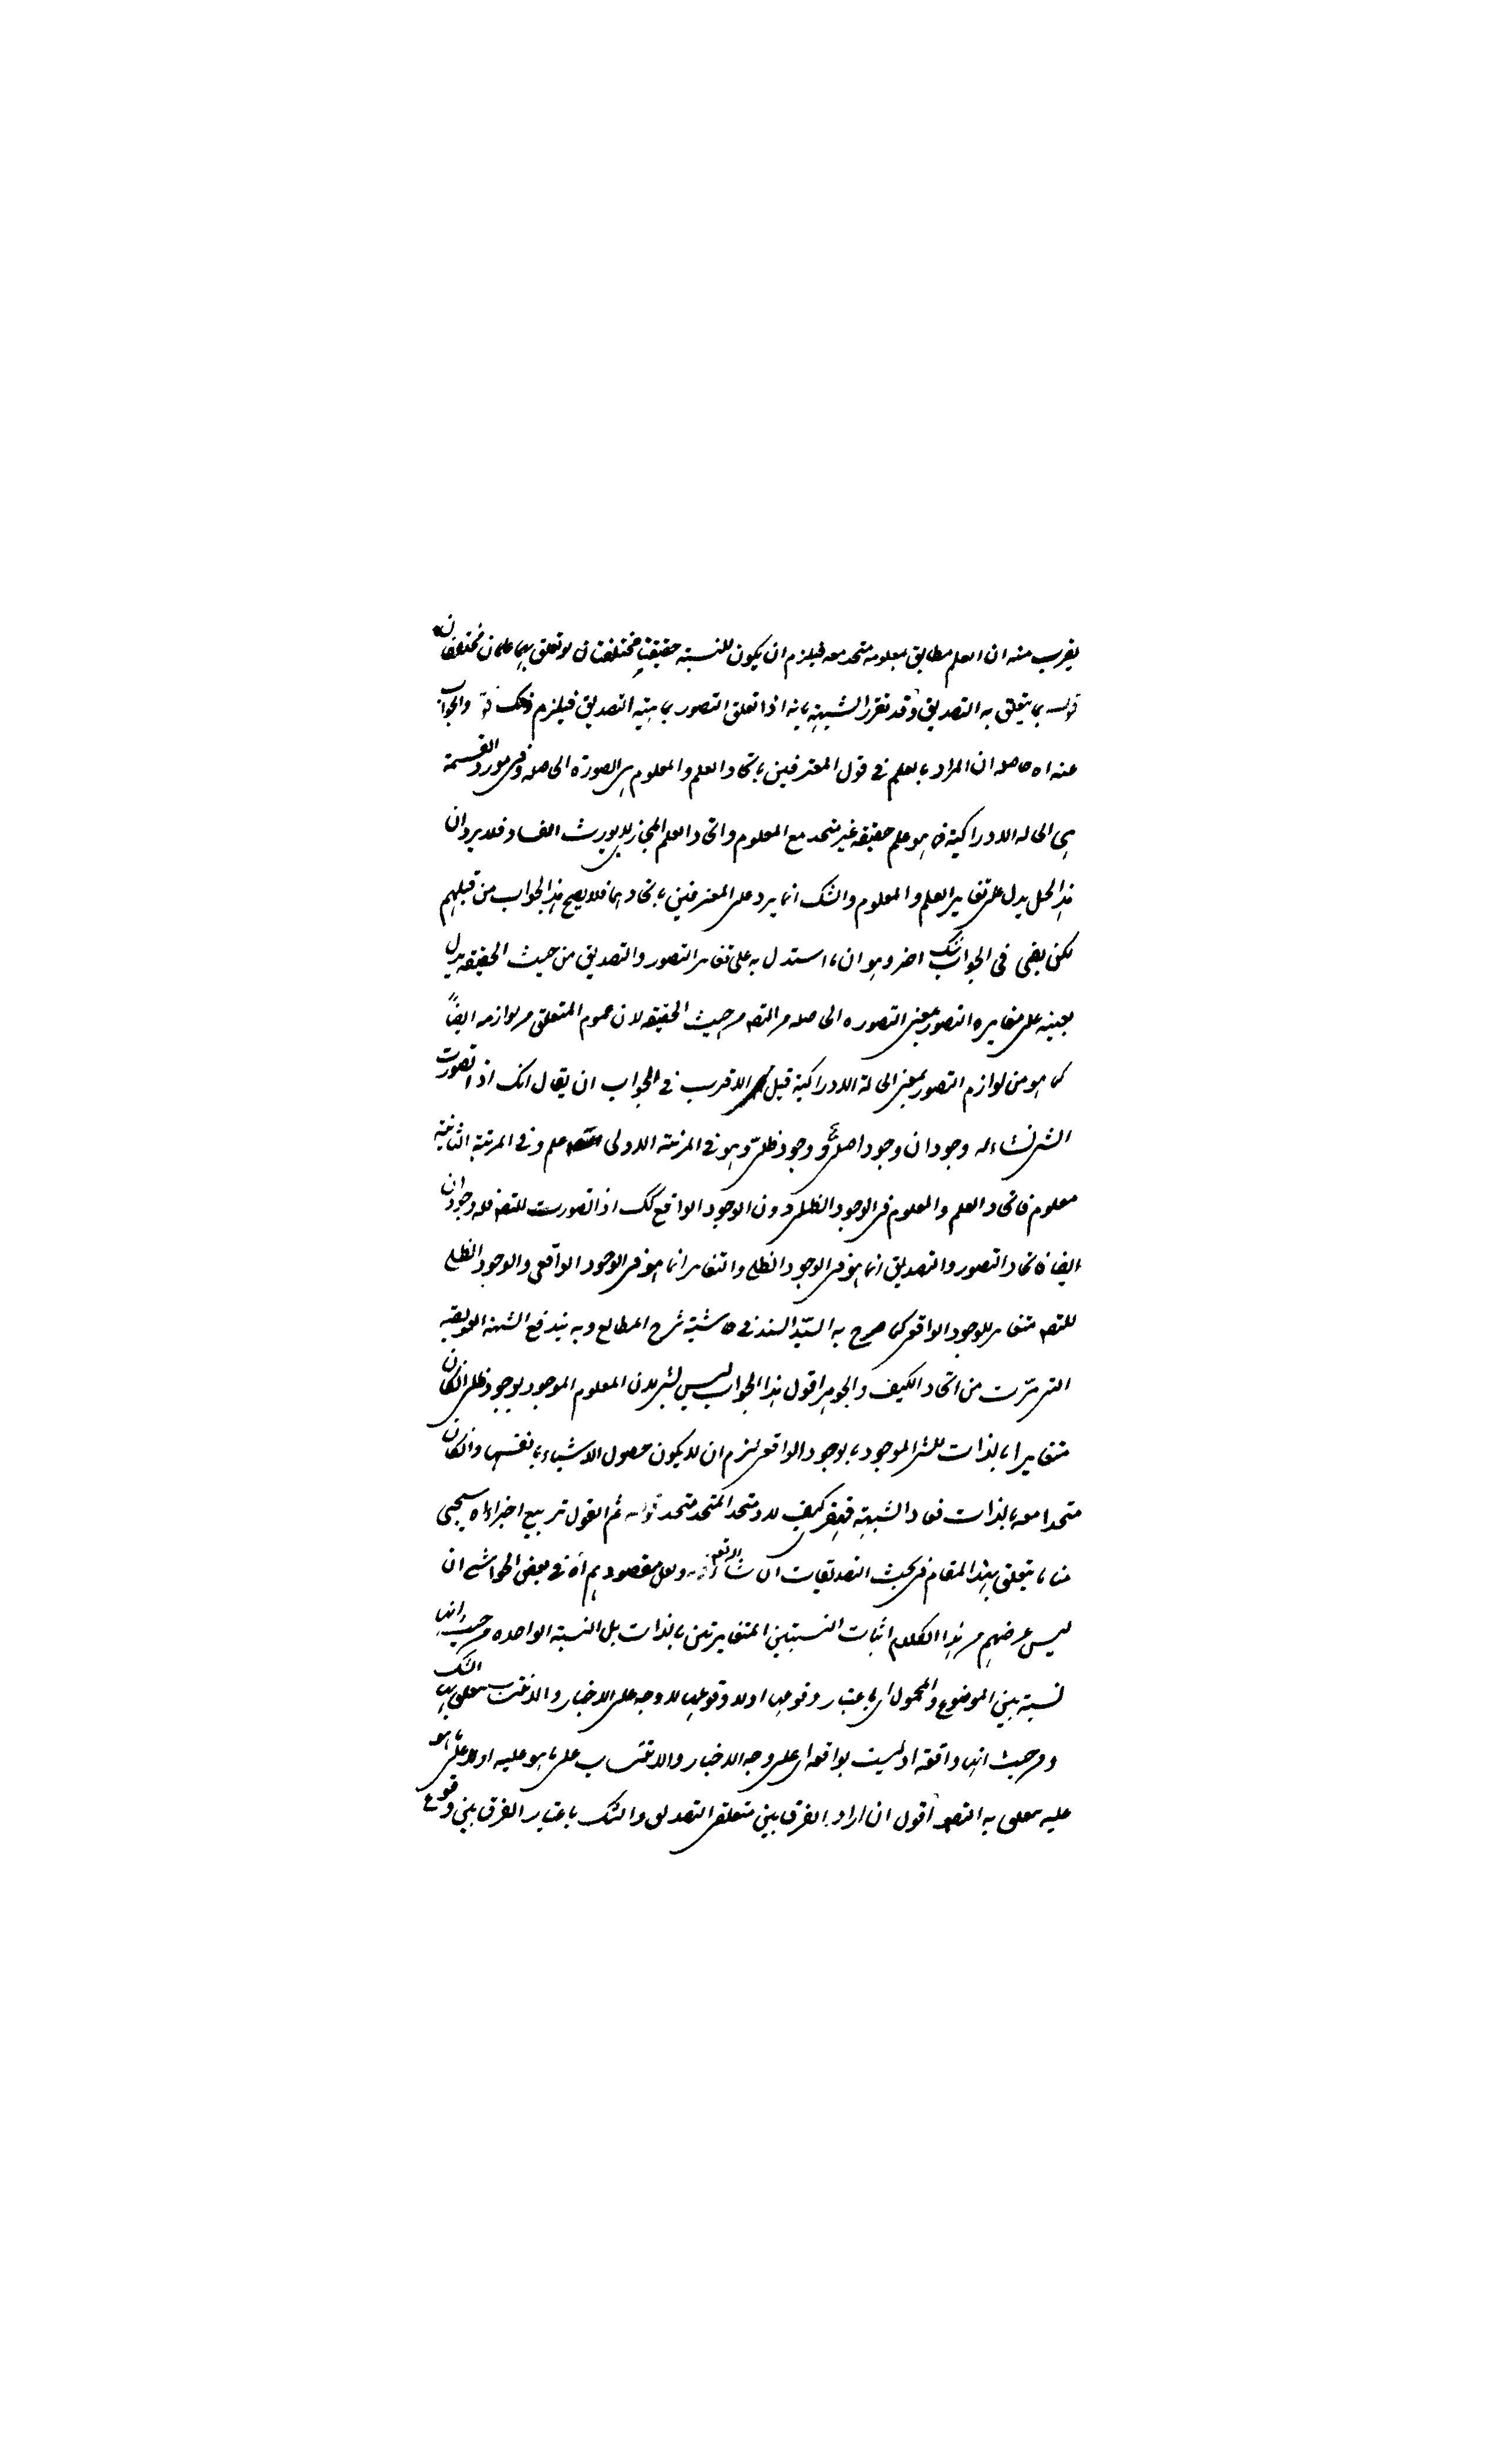 يقرب منه ان العلم مطابق بمعلومه متحد معه فيلزم ان يكون للنسبة حقيقتان مختلفتان لو تعلق بهما علمان مختلفان
قوله بما يتعلق به التصديق وقد تقرر الشبهة بانه اذا تعلق التصور بماهية التصديق فيلزم ذلك قوله والجواب
عنه اه حاصله ان المراد بالعلم في قول المعترفين باتحاد العلم والمعلوم هي الصورة الحاصلة وفي مورد القسمة
هي الحالة الادراكية فما هو علم حقيقة غير متحد مع المعلوم واتحاد العلم المجازي لا يورث الفساد فلا يرد ان
هذا الحل يدل على تغاير العلم والمعلوم والشك انما يرد على المعترفين باتحادهما فلا يصح هذا الجواب من قبلهم
لكن بقي في الجواب شك اخر وهو ان ما استدل به على تغاير التصور والتصديق من حيث الحقيقة يدل
بعينه على مغايرة التصور بمعنى الصورة الحاصلة من التصديق من حيث الحقيقة لان عموم المتعلق من لوازمه ايضاً
كما هو من لوازم التصور بمعنى الحالة الادراكية قيل الاقرب في الجواب ان يقال انك اذا تصورت
الشيء فله وجودان وجود اصلي و وجود ظلي وهو في المرتبة الاولى علم وفي المرتبة الثانية
معلوم فاتحاد العلم والمعلوم في الوجود الظلي دون الوجود الواقعي كك اذا تصورت التصديق فله وجودان
ايضا فاتحاد التصور والتصديق انما هو في الوجود الظلي والتغاير انما هو في الوجود الواقعي والوجود الظلي
للتصديق متغاير للوجود الواقعي كما صرح به السيد السند في حاشية شرح المطالع وبه يندفع الشبهة العويصة
التي مرت من اتحاد الكيف والجوهر اقول هذا الجواب ليس بشيء لان المعلوم الموجود بوجود ظلي ان كان
متغايرا بالذات للشيء الموجود بالوجود الواقعي لزم ان لا يكون حصول الاشياء بانفسها وان كان
متحدا معه بالذات فعاد الشبهة فيه كيف لا ومتحد المتحد متحد قوله ثم القول تربيع اجزاء اه سيجيء
منا ما يتعلق بهذا المقام في بحث التصديقات ان شاء الله تعالى قوله ولعل مقصودهم اه في بعض الحواشي ان
ليس غرضهم من هذا الكلام اثبات النسبتين المتغايرتين بالذات بل النسبة الواحدة من حيث انها
نسبة بين الموضوع والمحمول اي باعتبار وقوعها او لا وقوعها لا وجه على الاخبار والاذعان يتعلق بها الشك
ومن حيث انها واقعة او ليست بواقعة اي على وجه الاخبار والانتساب على ما هو عليه او لا على ما هو
عليه يتعلق به التصديق اقول ان اراد الفرق بين متعلق التصديق والشك باعتبار الفرق بين وقوع